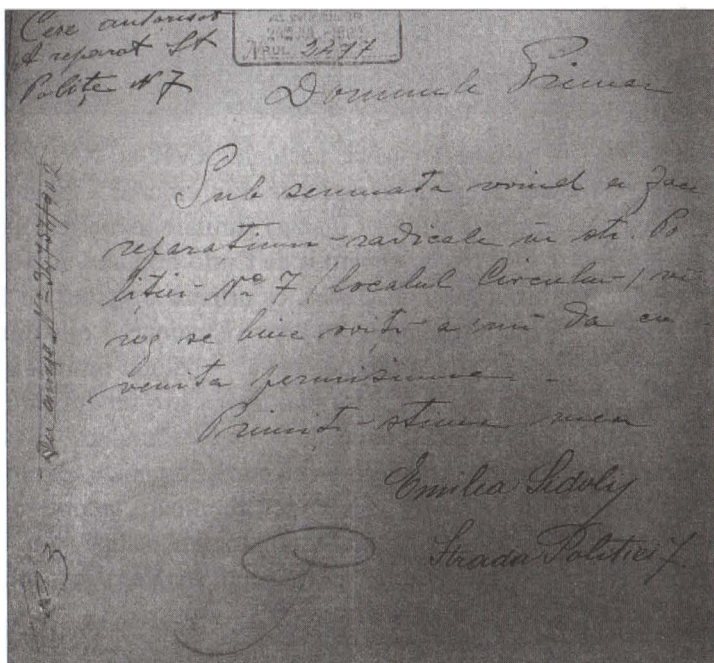 Cere autorisat
A reparat St
Poliție N 7
2277
Domnule Primar
Sub semnata voind a face
reparatiuni radicale in str. Po
litiei No 7 (localul Circului) vĕ
rog se bine voiți a 'mi da cu
venita permisiune.
Primiți stima mea
Emilia Sidoly
Strada Politiei 7